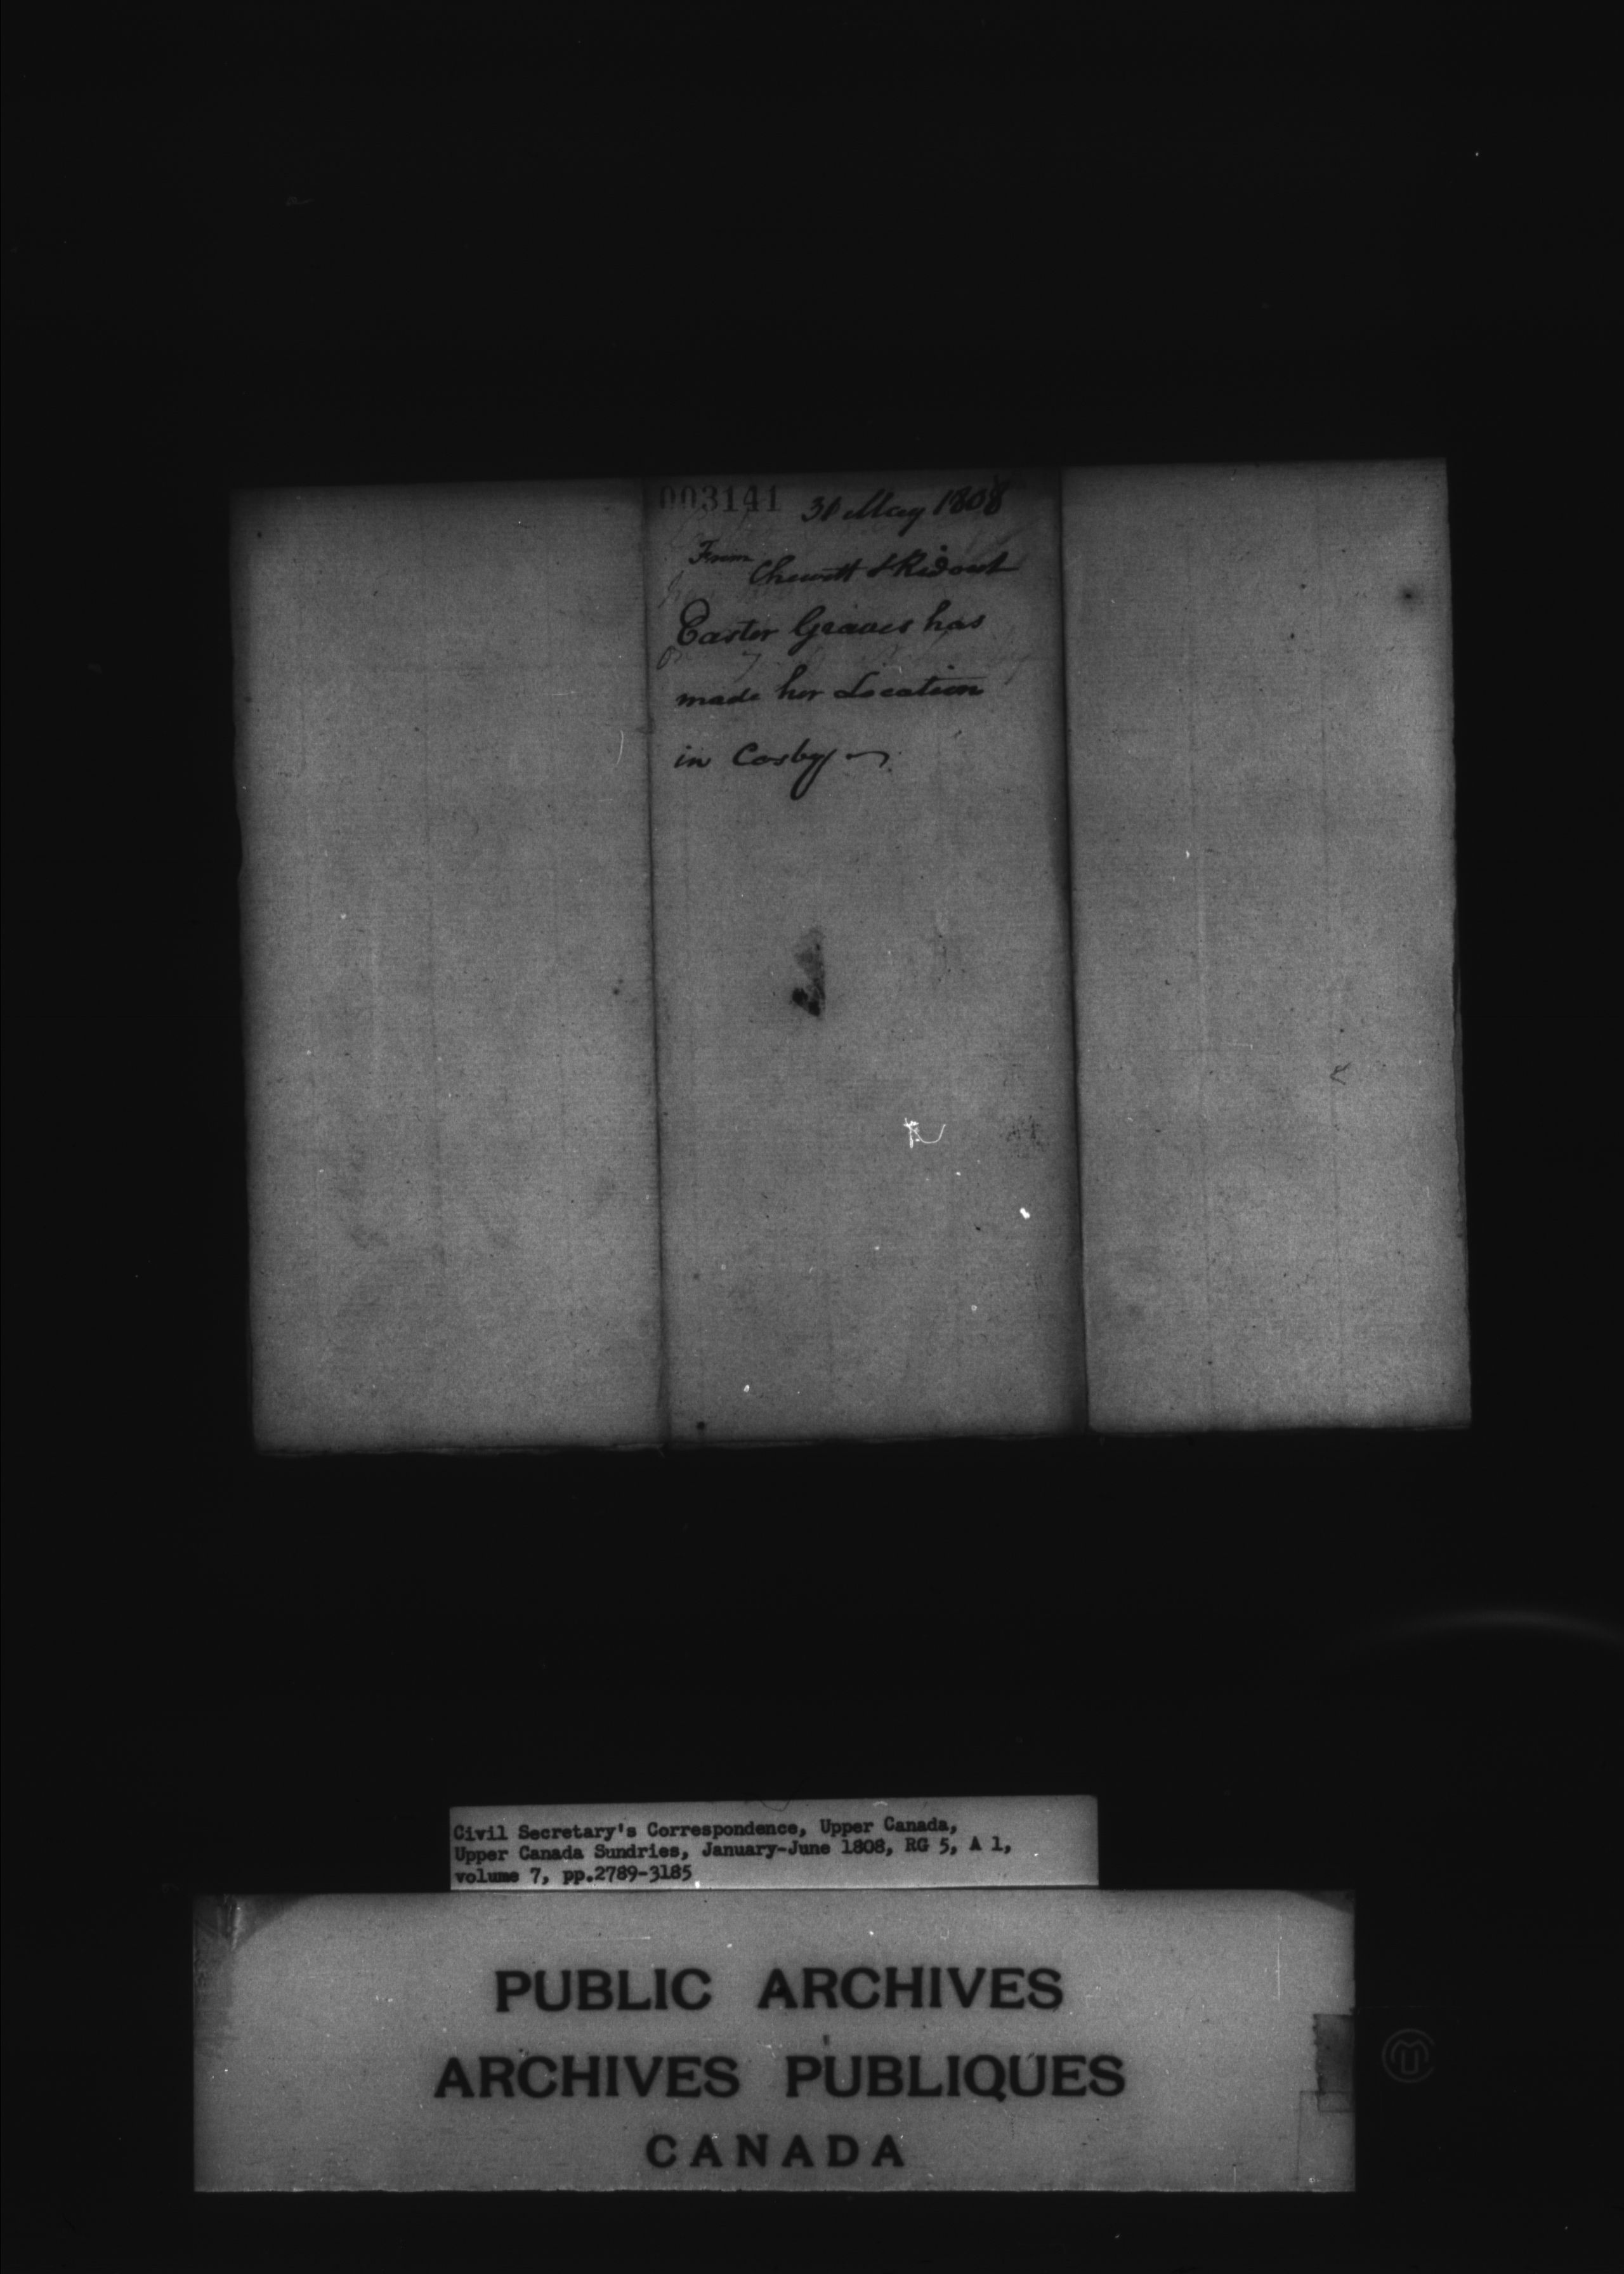 003141 31 May 1808
From
Chewett & Ridout
Easter Graves has
made her Location
in Cosby
Civil Secretary's Correspondence, Upper Canada,
Upper Canada Sundries, January-June 1808, RG 5, A 1,
volume 7, pp.2789-3185
PUBLIC ARCHIVES
ARCHIVES PUBLIQUES
CANADA